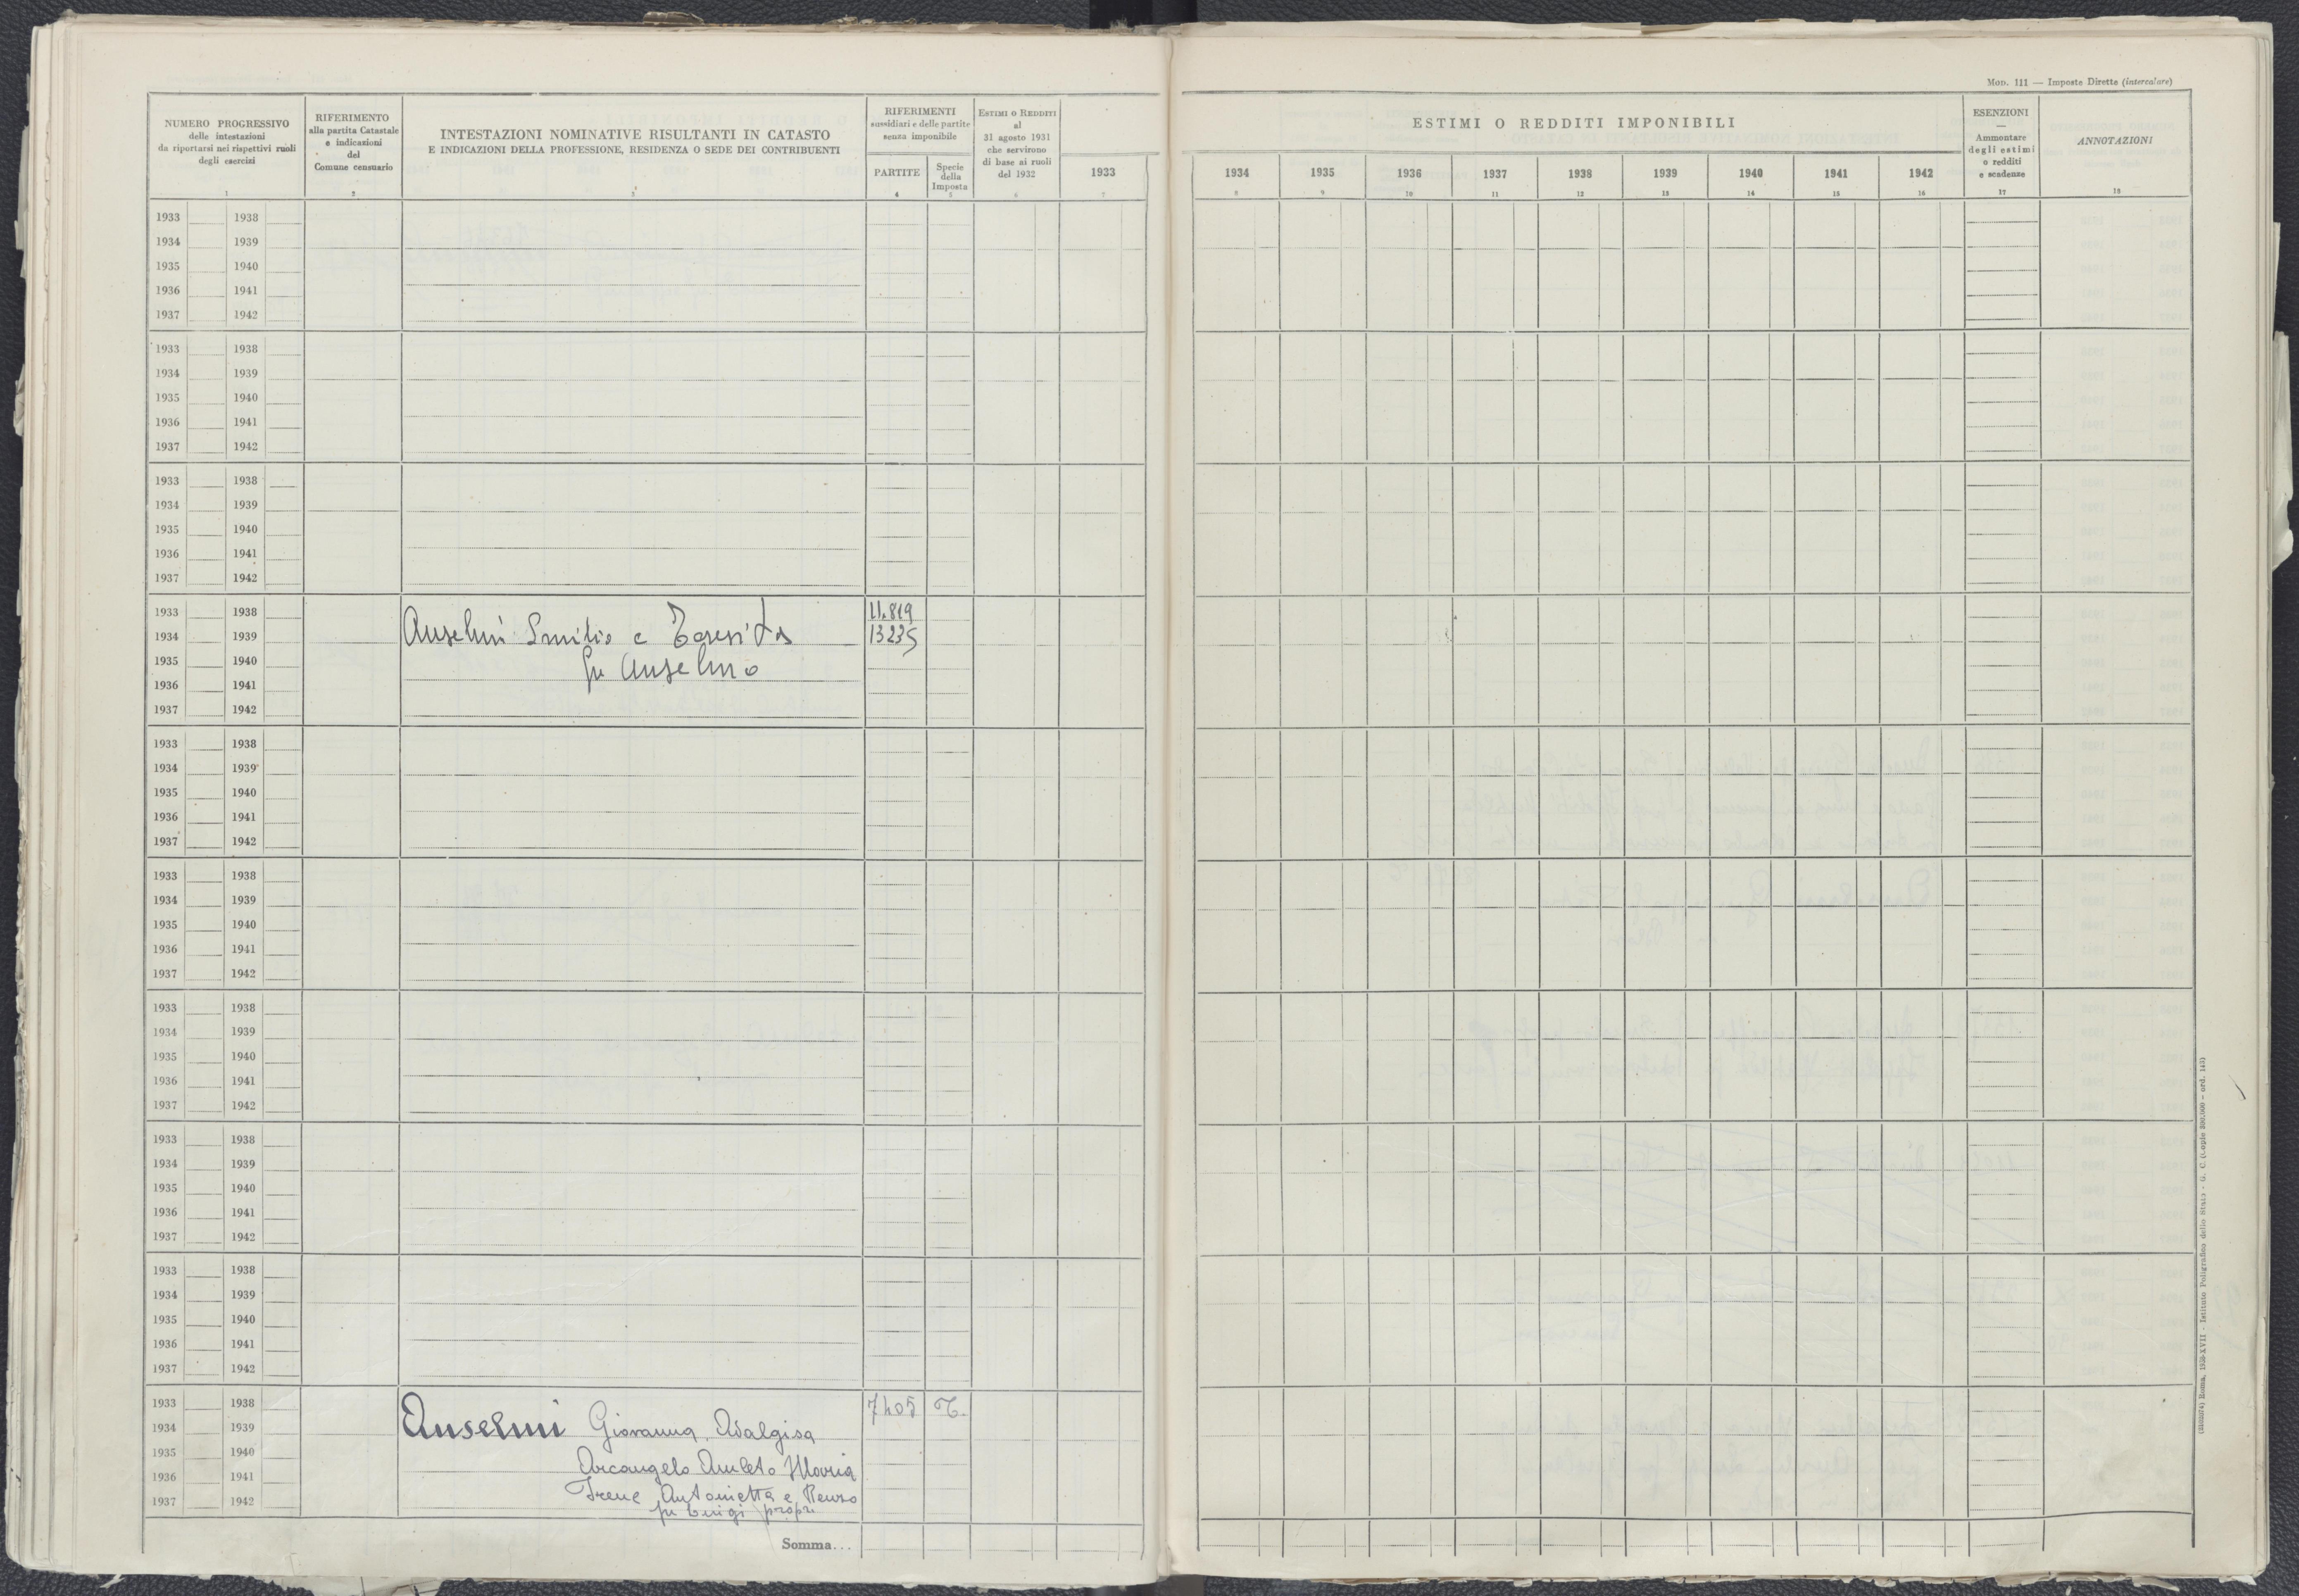 MOD. 111 — Imposte Dirette (intercalare)
NUMERO PROGRESSIVO
delle intestazioni
da riportarsi nei rispettivi ruoli
degli esercizi
1
RIFERIMENTO
alla partita Catastale
e indicazioni
del
Comune censuario
2
INTESTAZIONI NOMINATIVE RISULTANTI IN CATASTO
E INDICAZIONI DELLA PROFESSIONE, RESIDENZA O SEDE DEI CONTRIBUENTI
3
RIFERIMENTI
sussidiari e delle partite
senza imponibile
PARTITE
4
Specie
della
Imposta
5
ESTIMI O REDDITI
al
31 agosto 1931
che servirono
di base ai ruoli
del 1932
6
1933
7
ESTIMI O REDDITI IMPONIBILI
1934 1935 1936 1937 1938 1939 1940 1941 1942
8 9 10 11 12 13 14 15 16
ESENZIONI
—
Ammontare
degli estimi
o redditi
e scadenze
17
ANNOTAZIONI
18
1933 1938
1934 1939
1935 1940
1936 1941
1937 1942
1933 1938
1934 1939
1935 1940
1936 1941
1937 1942
1933 1938
1934 1939
1935 1940
1936 1941
1937 1942
1933 1938 11.819
1934 1939 Anselmi Emilio e Teresita 13235
1935 1940 fu Anselmo
1936 1941
1937 1942
1933 1938
1934 1939
1935 1940
1936 1941
1937 1942
1933 1938
1934 1939
1935 1940
1936 1941
1937 1942
1933 1938
1934 1939
1935 1940
1936 1941
1937 1942
1933 1938
1934 1939
1935 1940
1936 1941
1937 1942
1933 1938
1934 1939
1935 1940
1936 1941
1937 1942
1933 1938 7405 T.
1934 1939 Anselmi Giovanna, Adalgisa
1935 1940
1936 1941 Arcangelo Amleto Maria
1937 1942 Irene Antonietta e Renzo
fu Luigi propr
Somma...